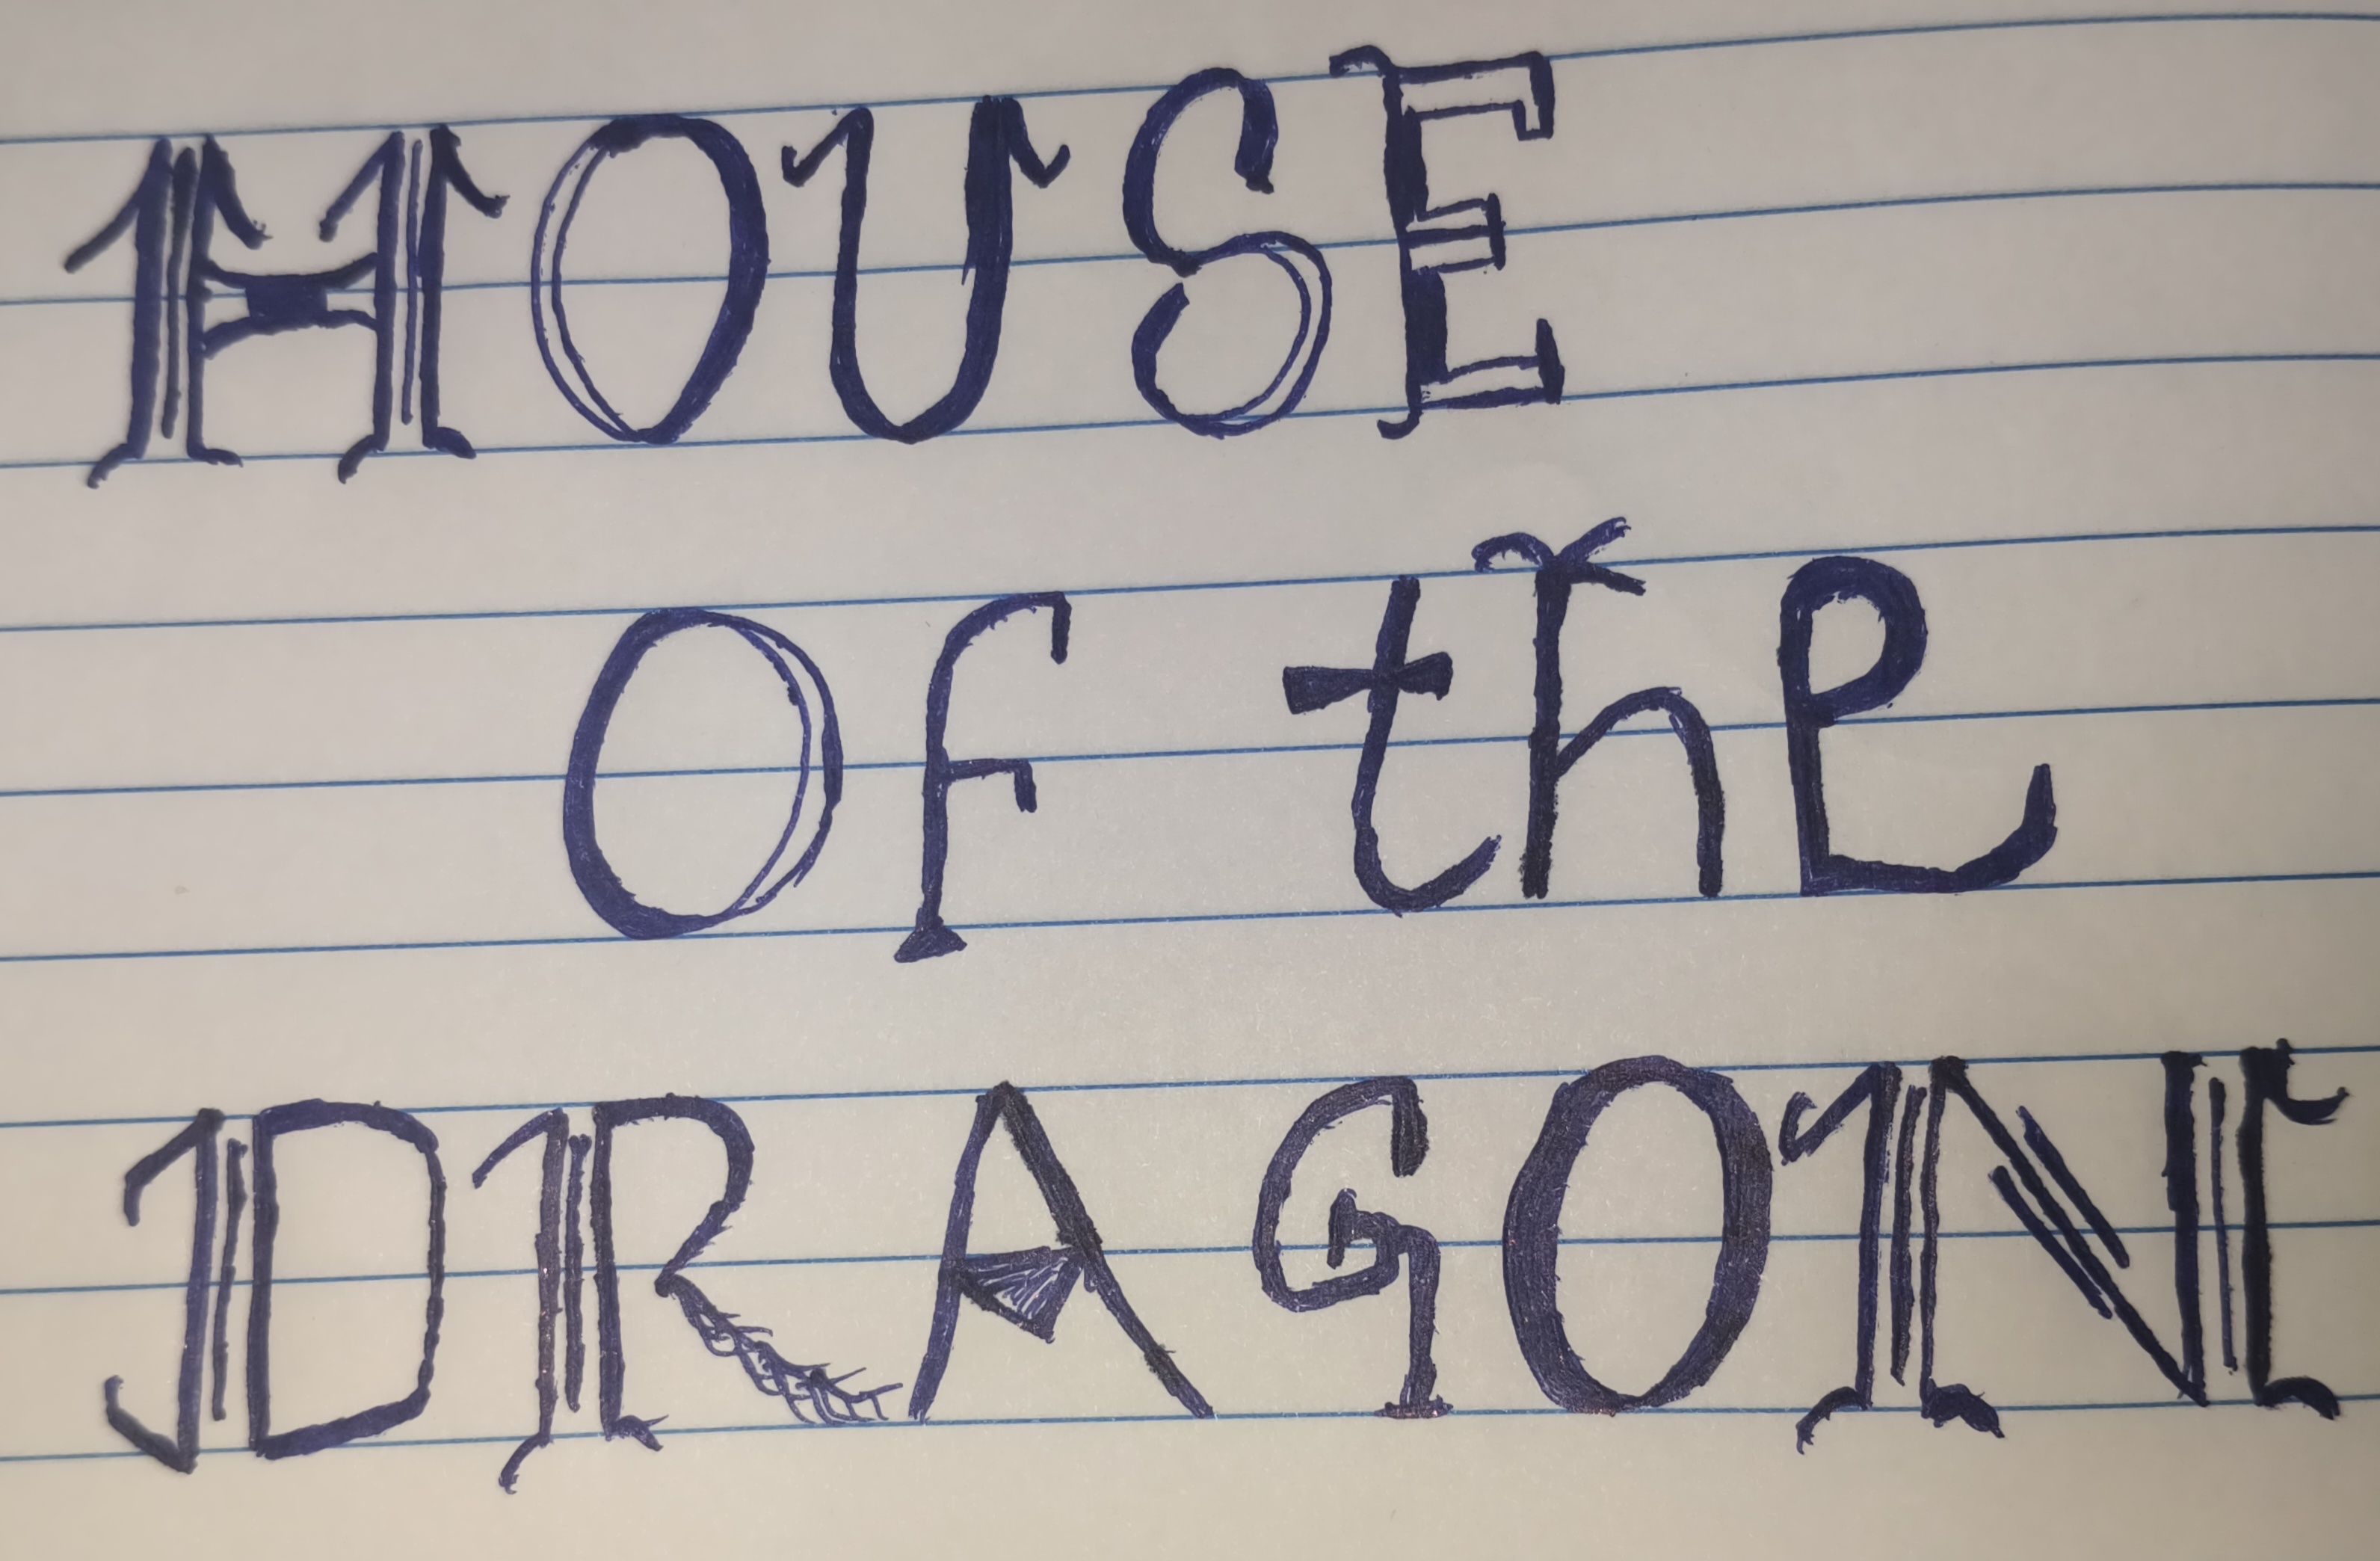 HOUSE
Of the
DRAGON